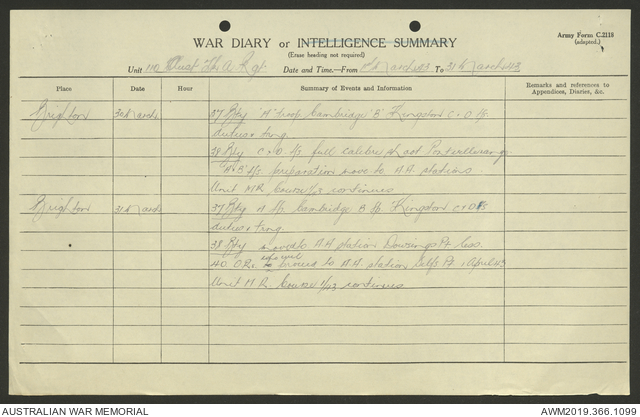 Army Form C.2118
(adapted.)
WAR DIARY or INTELLIGENCE SUMMARY
(Erase heading not required)
Unit 110 Aust Lt. A. A. Rgt. Date and Time—From 1 March 43 To 31 March 43
Place Date Hour Summary of Events and Information Remarks and references to Appendices, Diaries, &c.
Brighton 30 March 37 Bty 'A' Troop Cambridge 'B' Kingston C & D
duties & tng.
38 Bty C & D full calibre shoot
'A & B' preparation move to A.A. stations
Unit MR Course 1/43 continues
Brighton 31 March 37 Bty A Cambridge B Kingston C & D
duties & tng
38 Bty moved to AA station Dowsings Pt. less
40 O.Rs. who will
be moved to AA. station Selfs Pt. 1 April 43
Unit M R. Course 1/43 continues
AUSTRALIAN WAR MEMORIAL AWM2019.366.1099